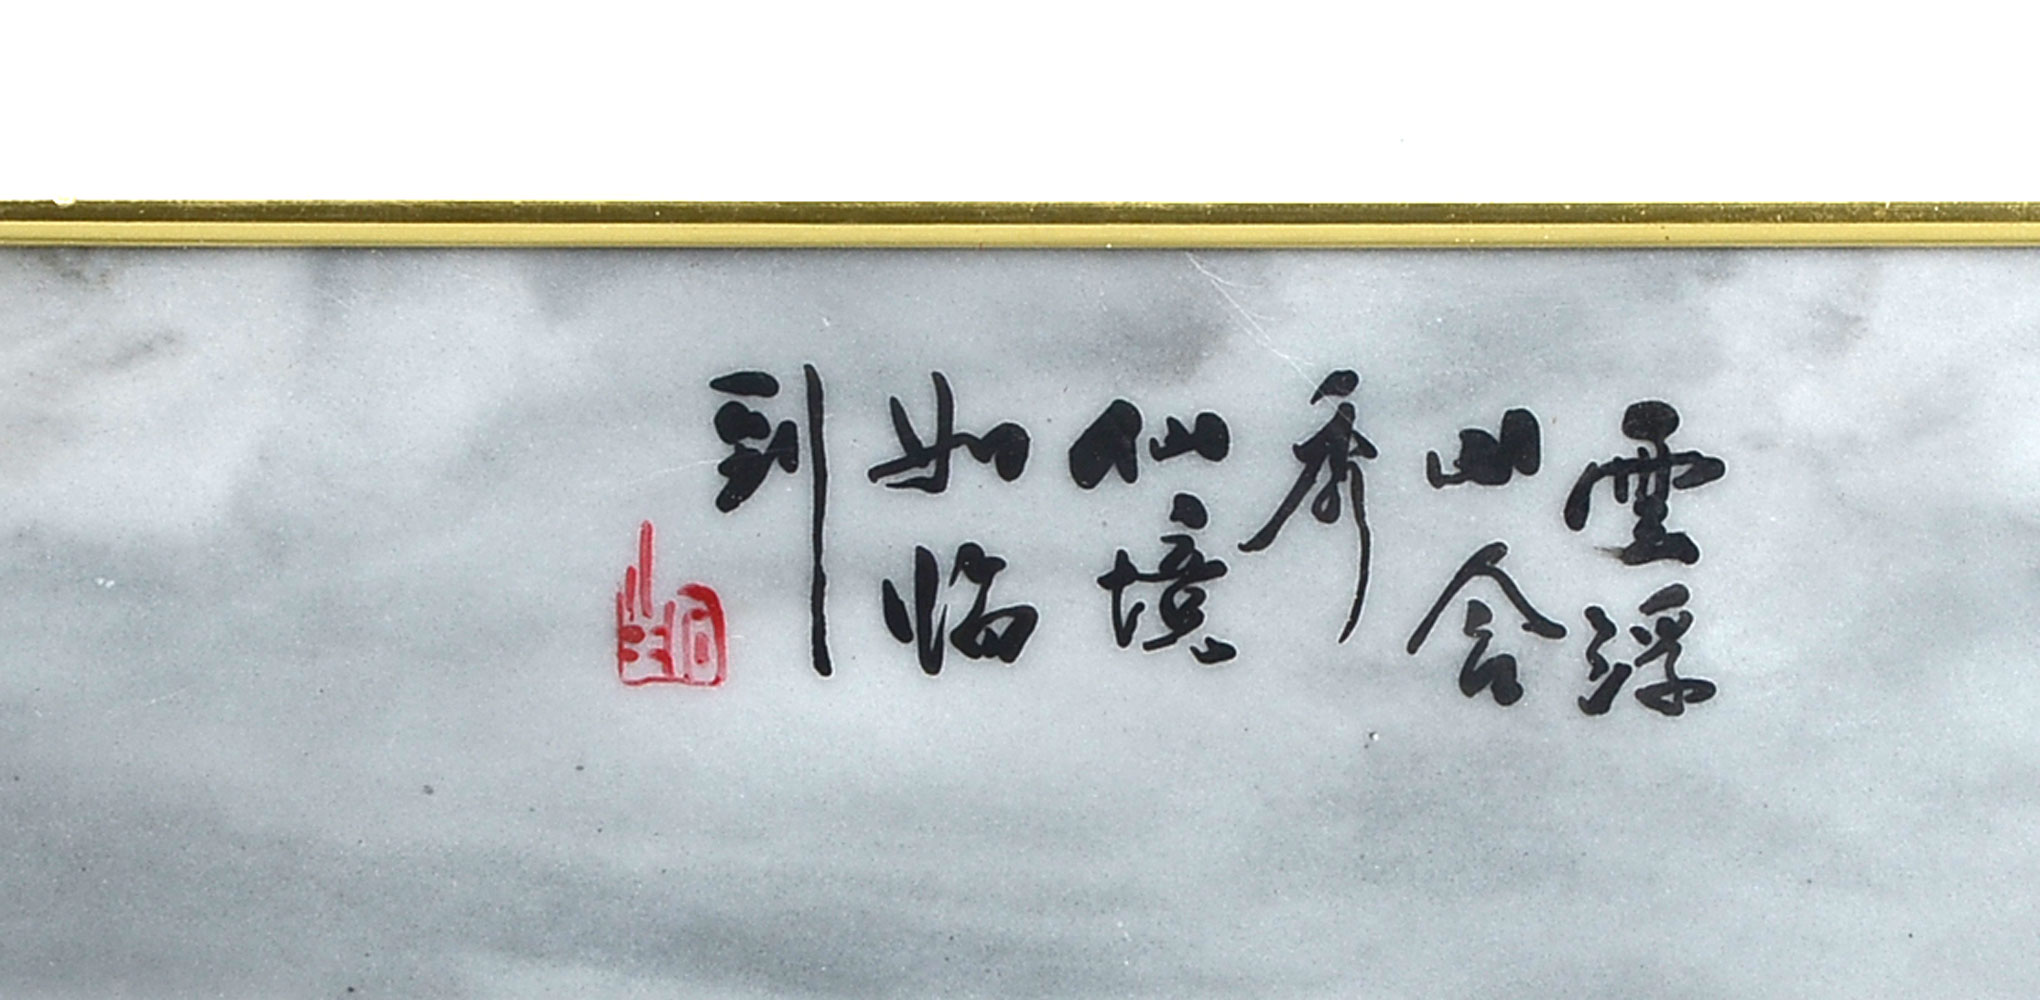 雲浮
山含
秀
仙境
如临
到